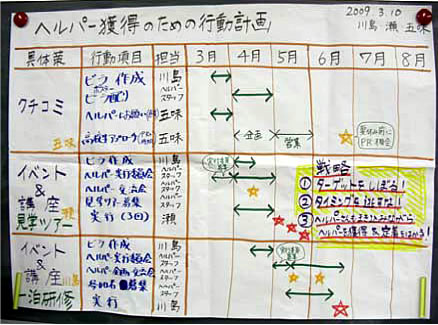 ヘルパー獲得のための行動計画
2009.3.10
川島 瀬 五味
具体策 行動項目 担当 3月 4月 5月 6月 7月 8月
クチコミ
五味
ビラ 作成 川島
ビラ配り ヘルパー スタッフ
五味
五味
企画 営業
イベント & 講座
瀬
見学ツアー
ビラ 作成 川島
ヘルパー実行委員会 ヘルパー スタッフ
ヘルパー交流会 ヘルパー スタッフ
見学ツアー募集 ヘルパー スタッフ
実行(3回) 瀬
戦略
① ターゲットをしぼる!
② タイミングを
③ ヘルパーさんもまき込みながら
ヘルパー獲得&定着をはかる!
イベント & 講座
川島
一泊研修
ビラ 作成 川島
ヘルパー実行委員会 ヘルパー スタッフ
ヘルパー企画・交流会 ヘルパー スタッフ
参加者募集 ヘルパー スタッフ
実行 川島